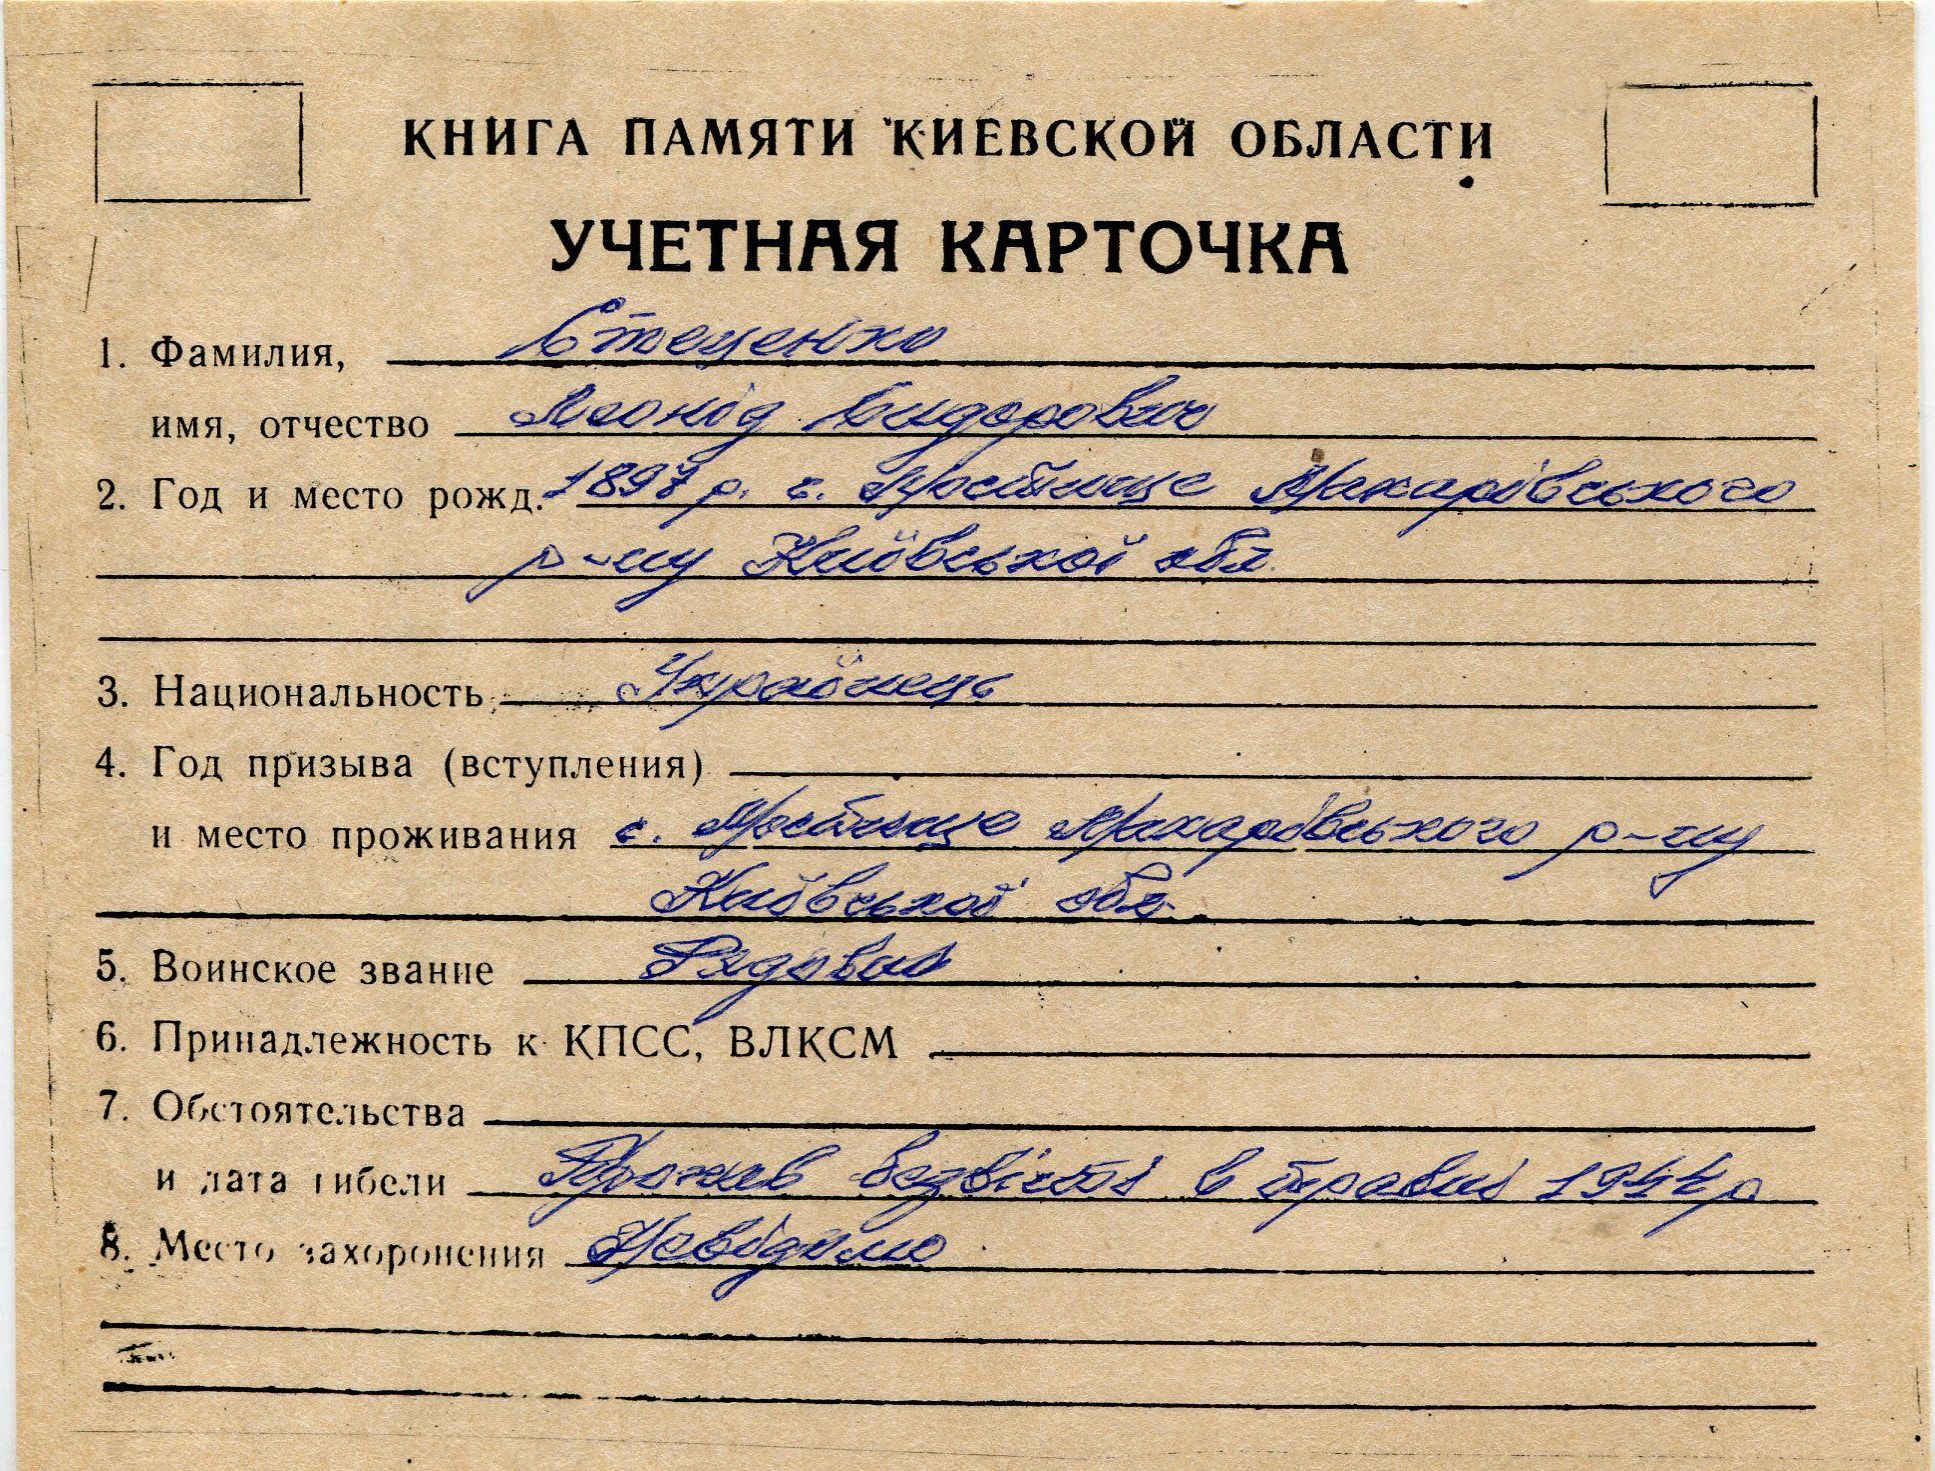 КНИГА ПАМЯТИ КИЕВСКОЙ ОБЛАСТИ
УЧЕТНАЯ КАРТОЧКА
1. Фамилия, Стеценко
имя, отчество Леонід Сидорович
2. Год и место рожд. 1897 р. с. Мостище Макарівського
р-ну Київської обл
3. Национальность Українець
4. Год призыва (вступления)
и место проживания с. Мостище Макарівського р-ну
Київської обл.
5. Воинское звание Рядовий
6. Принадлежность к КПСС, ВЛКСМ
7. Обстоятельства
и дата гибели Пропав безвісті в травні 1944 р
8. Место захоронения Невідомо